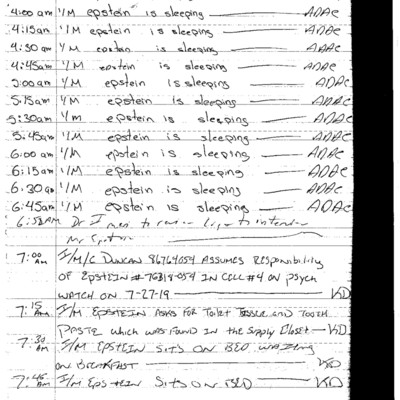 4:00 am I/M epstein is sleeping ADAC
4:15am I/M epstein is sleeping ADAC
4:30 am I/M epstein is sleeping ADAC
4:45am I/M epstein is sleeping ADAC
5:00am I/M epstein is sleeping ADAC
5:15am I/M epstein is sleeping ADAC
5:30am I/M epstein is sleeping ADAC
5:45am I/M epstein is sleeping ADAC
6:00 am I/M epstein is sleeping ADAC
6:15am I/M epstein is sleeping ADAC
6:30 am I/M epstein is sleeping ADAC
6:45am I/M epstein is sleeping ADAC
6:52AM Dr to to
Mr
7:00 AM I/M/C DUNCAN 86764054 ASSUMES RESPONSIBILITY
OF EPSTEIN #76318-054 IN CELL #4 ON PSYCH
WATCH ON 7-27-19 KD
7:15 AM I/M EPSTEIN ASKS FOR TOILET TISSUE AND TOOTH
PASTE which was FOUND IN the Supply Closet KD
7:30 AM I/M EPSTEIN SITS ON BED WAITING
ON BREAKFAST KD
7:45 AM I/M EPSTEIN SITS ON BED KD